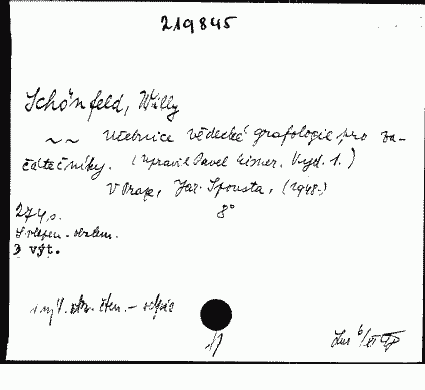 219845
Schönfeld, Willy
~~ Učebnice vědecké grafologie pro za-
čátečníky. (Upravil Pavel Eisner. Vyd. 1.)
V Praze, Jar. Spousta, (1948.)
274 s. 8°
3 výt.
1 výt. čten. -